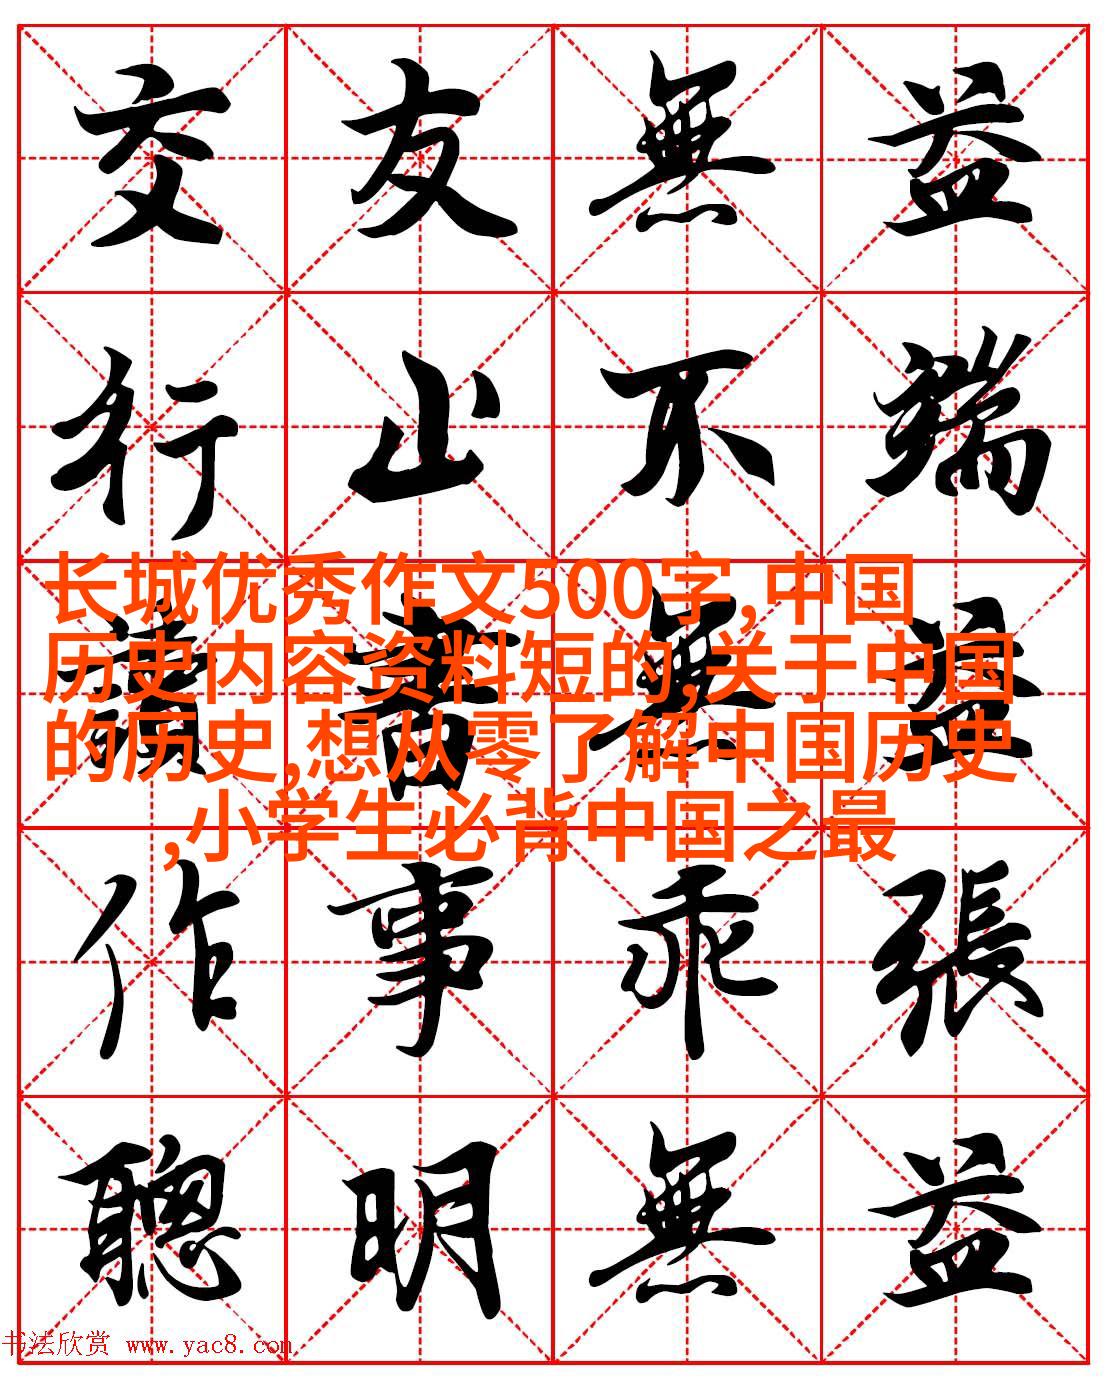 交友無益
行止不端
長城优秀作文500字,中国
历史内容资料短的,关于中国
的历史,想从零了解中国历史
,小学生必背中国之最
讀書無益
作事乖張
聰明無益
书法欣赏 www.yac8.com